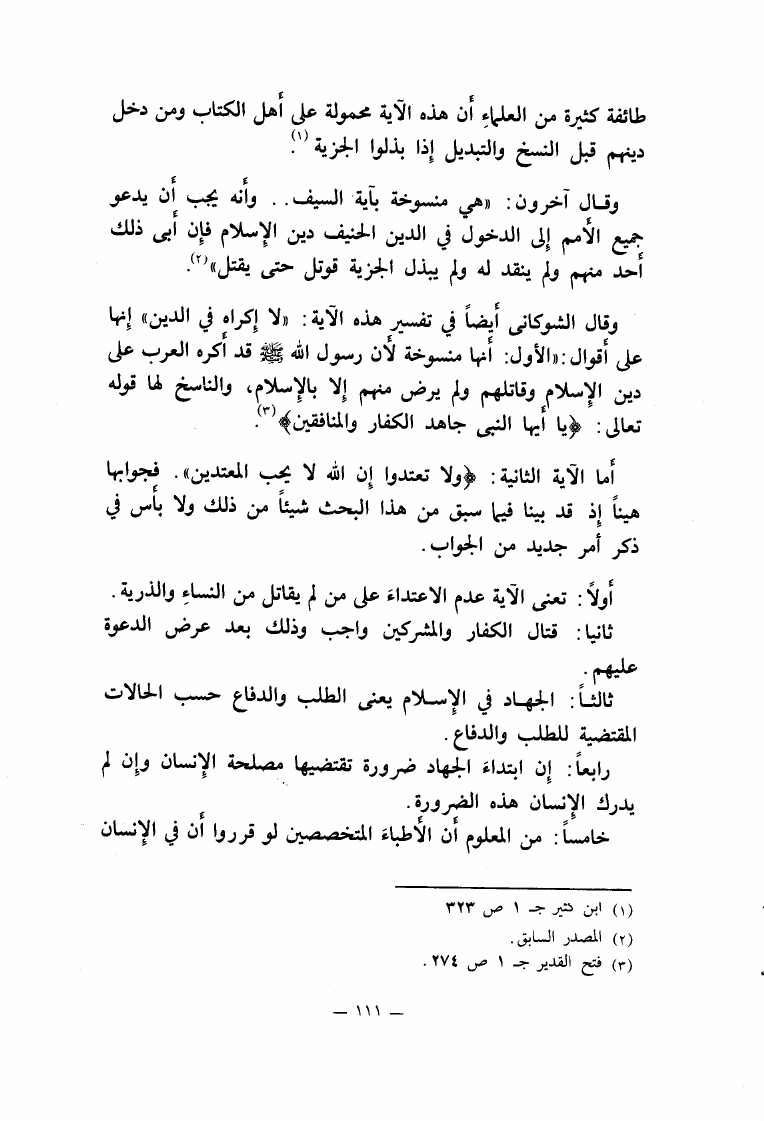 طائفة كثيرة من العلماءِ أَن هذه الآية محمولة على أَهل الكتاب ومن دخل
دينهم قبل النسخ والتبديل إِذا بذلوا الجزية (١).
وقال آخرون: «هي منسوخة بآية السيف.. وأَنه يجب أَن يدعو
جميع الأُمم إِلى الدخول في الدين الحنيف دين الإِسلام فإِن أَبى ذلك
أَحد منهم ولم ينقد له ولم يبذل الجزية قوتل حتى يقتل» (٢).
وقال الشوكانى أَيضاً في تفسير هذه الآية: «لا إِكراه في الدين» إِنها
على أَقوال: «الأَول: أَنها منسوخة لأَن رسول الله ﷺ قد أَكره العرب على
دين الإِسلام وقاتلهم ولم يرض منهم إِلا بالإِسلام، والناسخ لها قوله
تعالى: ﴿يا أَيها النبى جاهد الكفار والمنافقين﴾ (٣).
أَما الآية الثانية: ﴿ولا تعتدوا إِن الله لا يحب المعتدين». فجوابها
هيناً إِذ قد بينا فيما سبق من هذا البحث شيئاً من ذلك ولا بأْس في
ذكر أَمر جديد من الجواب.
أَولاً: تعنى الآية عدم الاعتداءَ على من لم يقاتل من النساءِ والذرية.
ثانيا: قتال الكفار والمشركين واجب وذلك بعد عرض الدعوة
عليهم.
ثالثاً: الجهاد في الإِسلام يعنى الطلب والدفاع حسب الحالات
المقتضية للطلب والدفاع.
رابعاً: إِن ابتداءَ الجهاد ضرورة تقتضيها مصلحة الإِنسان وإِن لم
يدرك الإِنسان هذه الضرورة.
خامساً: من المعلوم أَن الأَطباءَ المتخصصين لو قرروا أَن في الإِنسان
(١) ابن كثير جـ ١ ص ٣٢٣
(٢) المصدر السابق.
(٣) فتح القدير جـ ١ ص ٢٧٤.
— ١١١ —